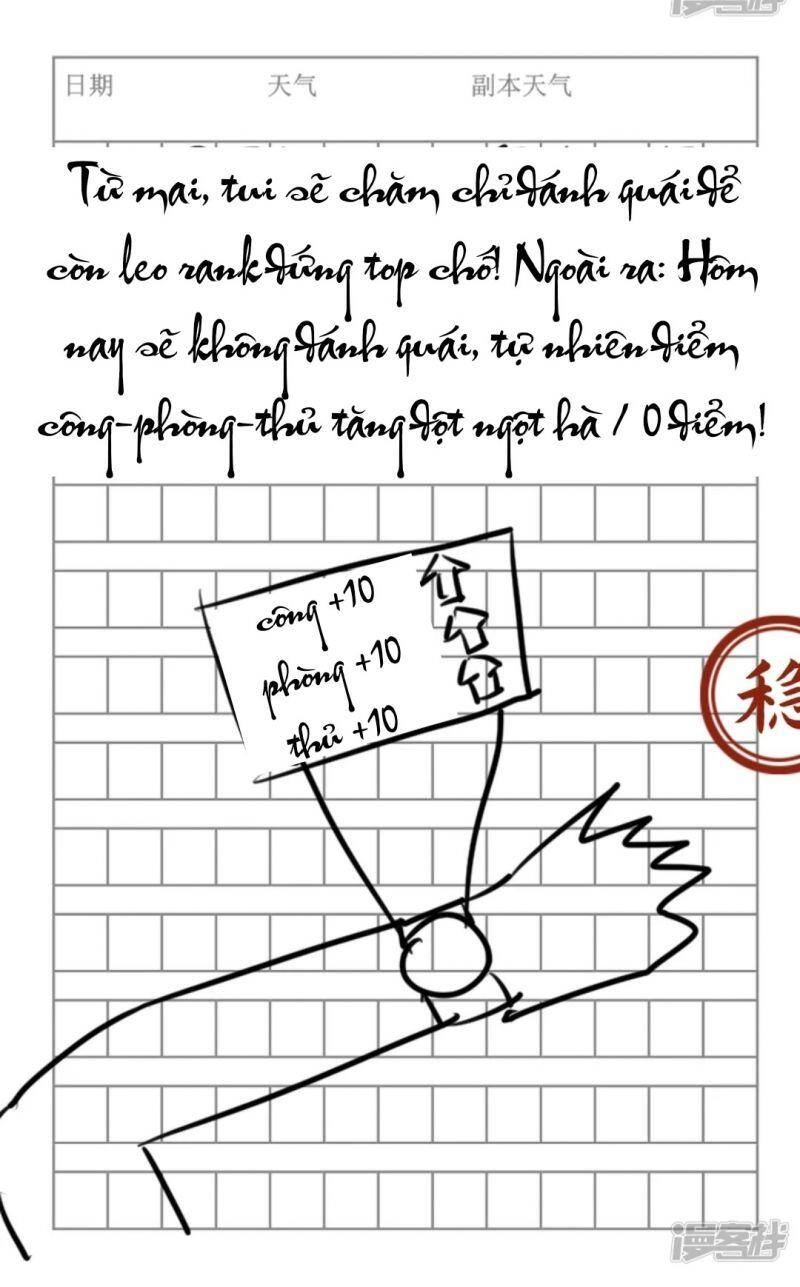 日期 天气 副本天气
Từ mai, tui sẽ chăm chỉ đánh quái để
còn leo rank đứng top chớ! Ngoài ra: Hôm
nay sẽ không đánh quái, tự nhiên điểm
công-phòng-thủ tăng đột ngột hà / 0 điểm!
công +10
phòng +10
thủ +10
稳
漫客栈